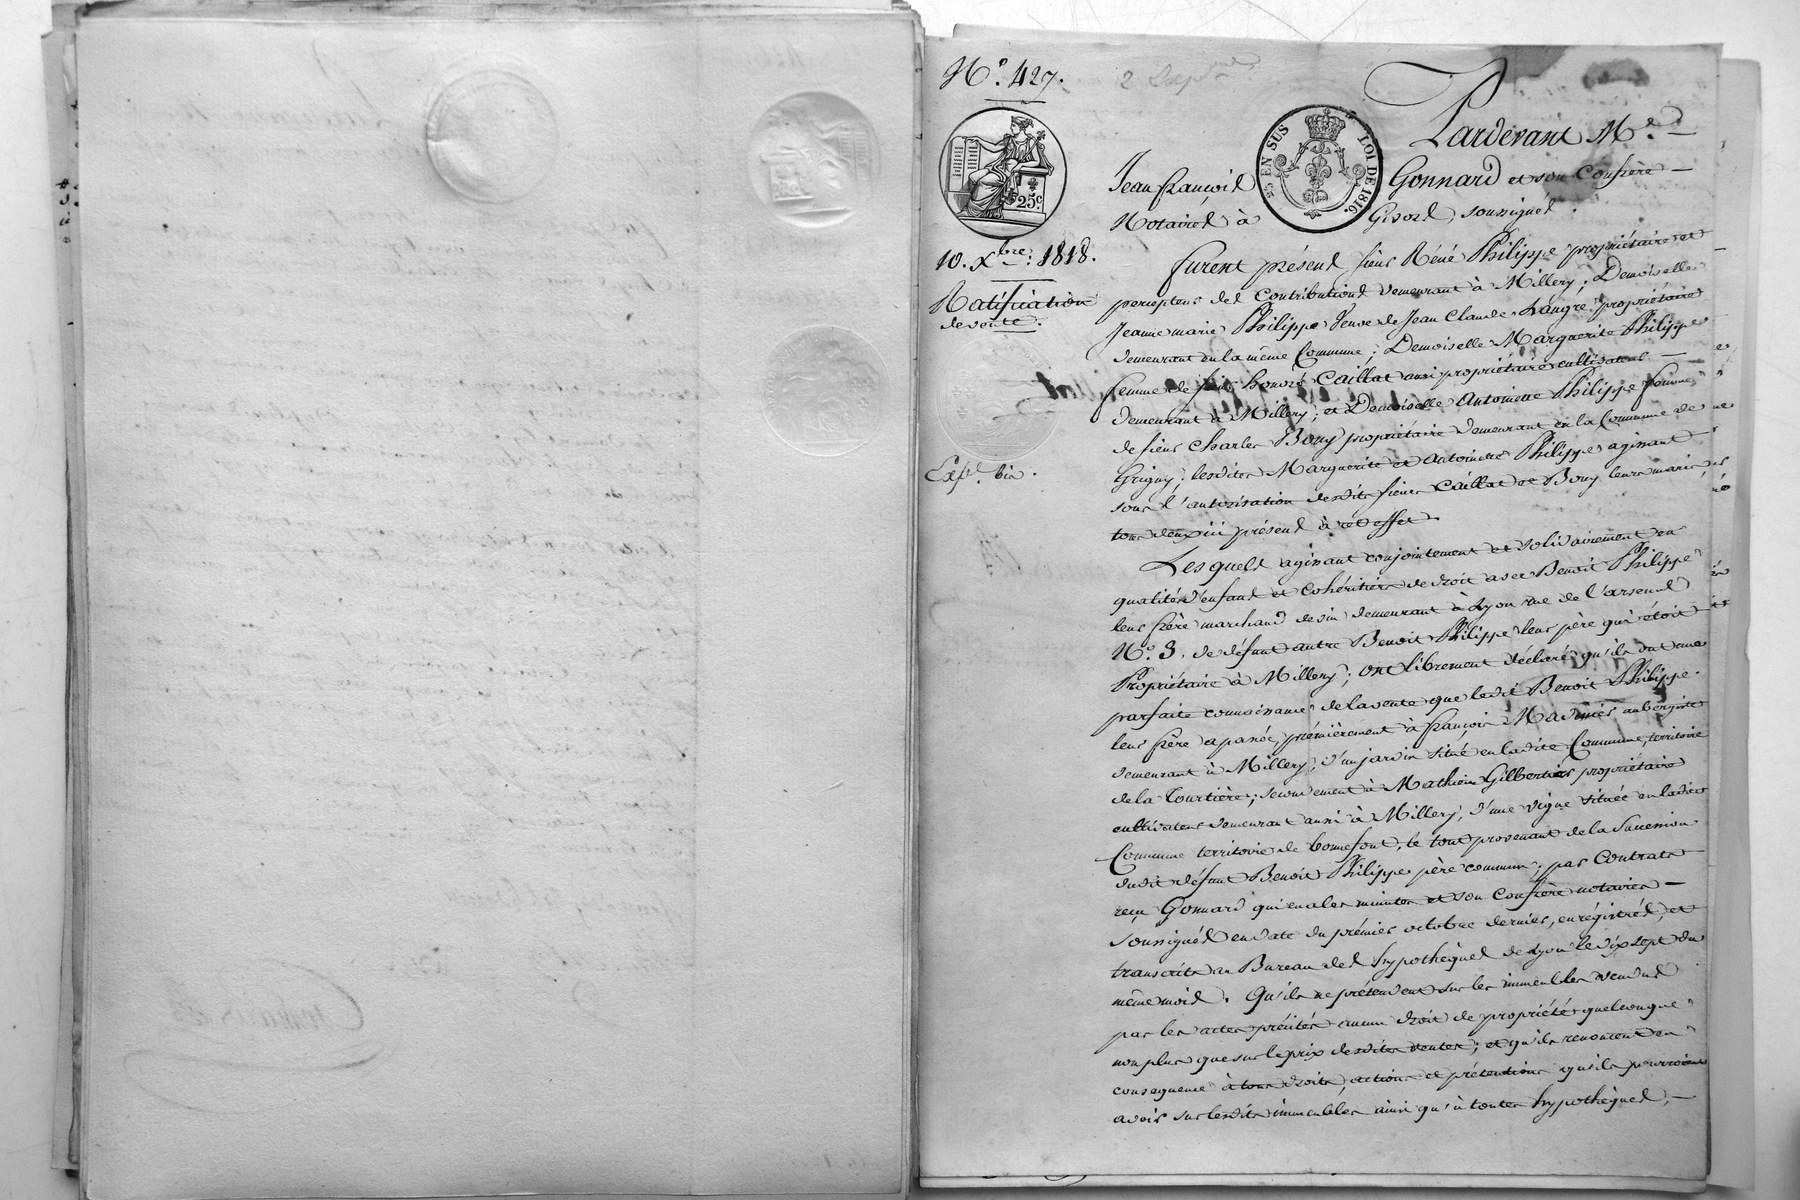 N.º 427.
25c.
25 EN SUS
LOI DE 1816.
10. Xbre. 1818.
Ratification
de vente.
Exp. bis.
Pardevant Me.
Jean françois Gonnard et son Confrère
Notaires à Givors, soussignés.
furent présens sieur Réné Philippe propriétaire et
percepteur des Contributions demeurant à Millery; Demoiselle
Jeanne marie Philippe Veuve de Jean Claude Langre propriétaire
demeurant en la même Commune; Demoiselle Marguerite Philippe
femme de sieur honoré Caillat aussi propriétaire cultivateur
demeurant à Millery; et Demoiselle Antoinette Philippe femme
de sieur Charles Bouy propriétaire demeurant en la Commune de
Grigny; lesdites Marguerite et Antoinette Philippe agissant
sous l'autorisation desdits sieurs Caillat et Bouy leurs maris,
tous deux ici présens à cet effet.
Lesquels agissant conjointement et solidairement en
qualités d'enfans et cohéritiers de droit avec Benoit Philippe
leur frère marchand de vin demeurant à Lyon rue de l'arsenal
N.º 3. de défunt autre Benoit Philippe leur père qui étoit
Propriétaire à Millery; ont librement déclaré qu'ils ont une
parfaite connoissance de la vente que ledit Benoit Philippe
leur frère a passée, prémièrement à françois aubergiste
demeurant à Millery, d'un jardin situé en ladite Commune, territoire
de la Tourtière; secondement à Mathieu Gilbertier propriétaire
cultivateur demeurant aussi à Millery, d'une vigne située en ladite
Commune territoire de bonnefont, le tout provenant de la Succession
dudit défunt Benoit Philippe père commun; par Contrats
reçu Gonnard qui en a les minutes et son Confrère notaires
soussignés en date du prémier octobre dernier, enrégistrés, et
transcrits au Bureau des hypothèques de Lyon le dix sept du
même mois. Qu'ils ne prétendent sur les immeubles vendus
par les actes précités aucun droit de propriété quelconque
non plus que sur le prix desdites ventes; et qu'ils renoncent en
conséquence à tous droits, actions et prétentions qu'ils pourroient
avoir sur lesdits immeubles ainsi qu'à toutes hypothèques,